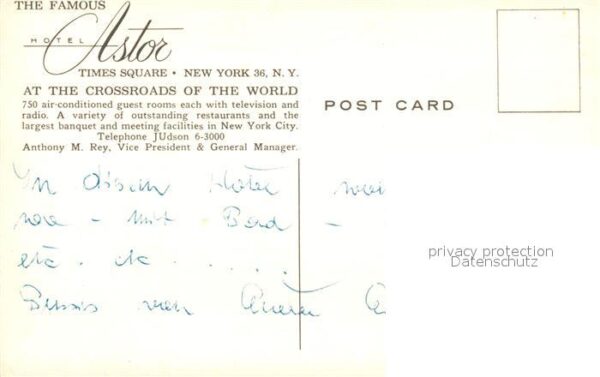 THE FAMOUS
HOTEL Astor
TIMES SQUARE • NEW YORK 36, N. Y.
AT THE CROSSROADS OF THE WORLD
750 air-conditioned guest rooms each with television and
radio. A variety of outstanding restaurants and the
largest banquet and meeting facilities in New York City.
Telephone JUdson 6-3000
Anthony M. Rey, Vice President & General Manager.
POST CARD
In diesem Hotel
mit - Bad -
etc. etc. . . . . .
von
privacy protection
Datenschutz